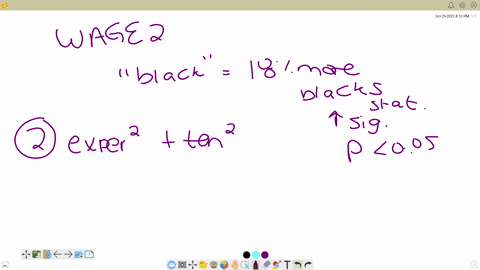 Oct 29-2025 8:10 PM 1/1
WAGE2
"black" = 18% more
blacks
stat.
↑ sig.
p < 0.05
② exper² + ten²